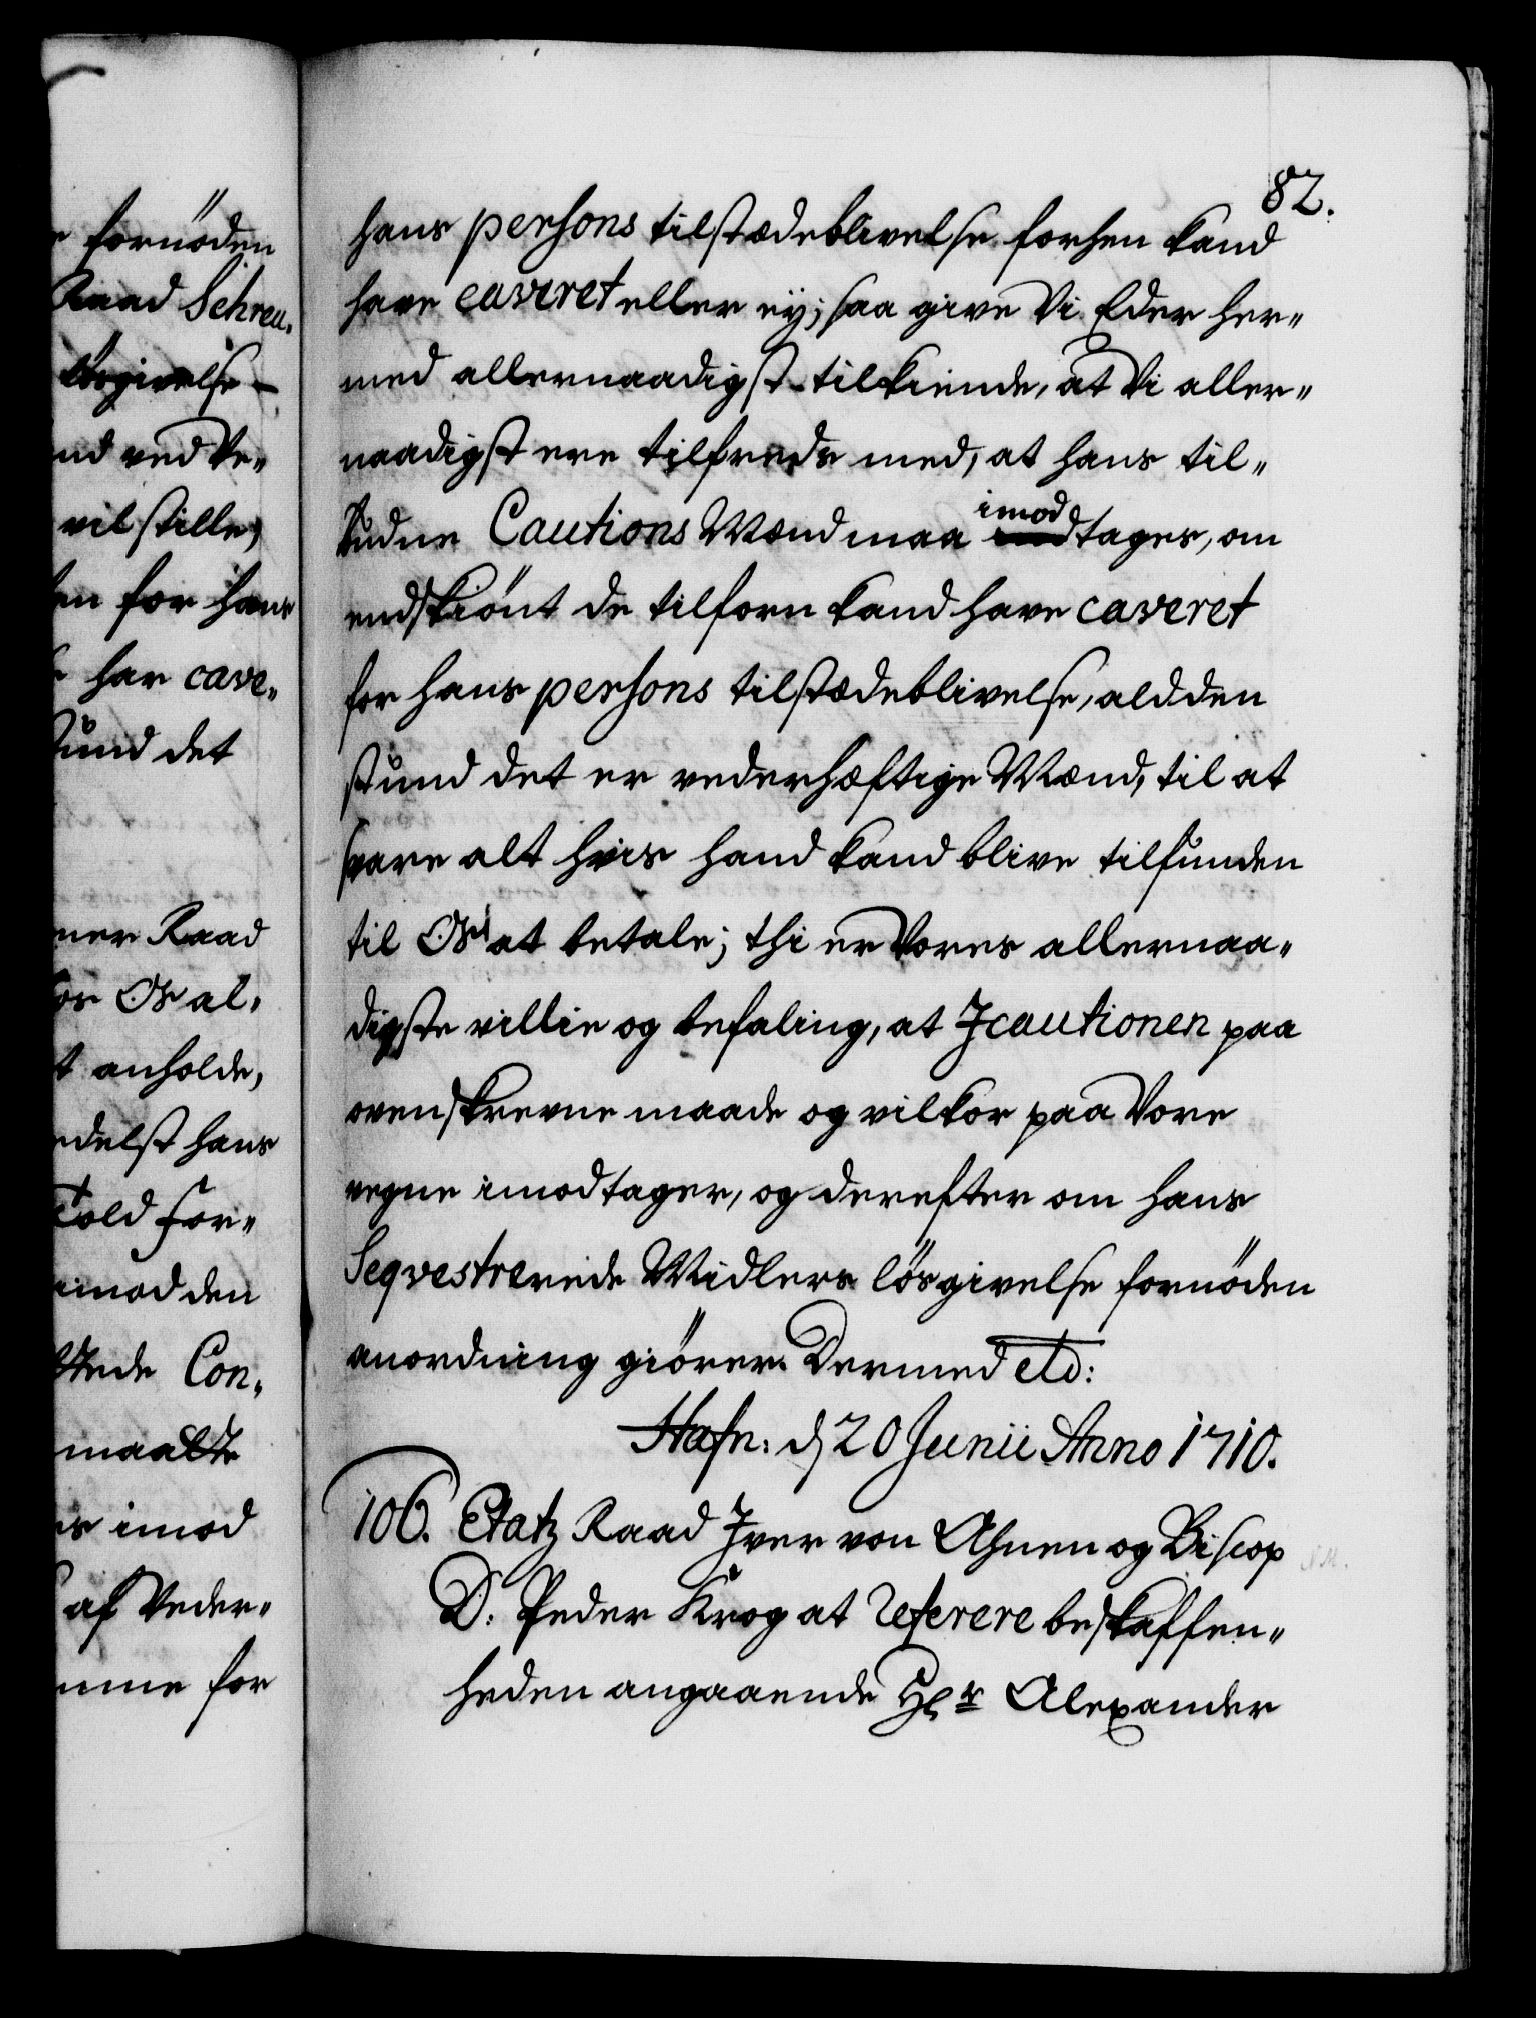 fornöden
Raad Schreu„
lösgivelse
nd ved Ve„
vil stille,
en for hans
har cave„
stund det
ner Raad
for Os al„
t anholde,
edelst hans
Told For„
imod den
ttede Con„
maalte
is imod
af Veder„
mme for
82.
hans persons tilstædeblivelse forhen kand
have caveret eller ey; saa give Vi Eder her„
med allernaadigst tilkiende, at Vi aller„
naadigst ere tilfreds med, at hans til„
budne Cautions Mænd maa imodtages, om
endskiönt de tilforn kand have caveret
for hans persons tilstædeblivelse, ald den
stund det er vederhæftige Mænd, til at
svare alt hvis hand kand blive tilfunden
til Os at betale; thi er Vores allernaa„
digste villie og befaling, at J cautionen paa
ovenskrevne maade og vilkor paa Vore
vegne imodtager, og derefter om hans
Seqvestrerede Midlers lösgivelse fornöden
anordning giörer. Dermed etc:
Hafn: d 20 Junii Anno 1710.
106. Etatz Raad Iver von Ahnen og Biscop
D. Peder Krog at referere beskaffen„
heden angaaende Hr Alexander